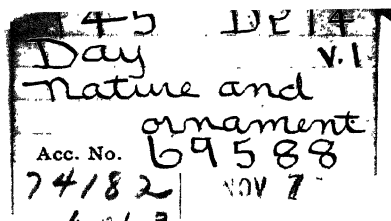 745 D214
Day v.1
Nature and
ornament
Acc. No. 69588
74182 NOV 7